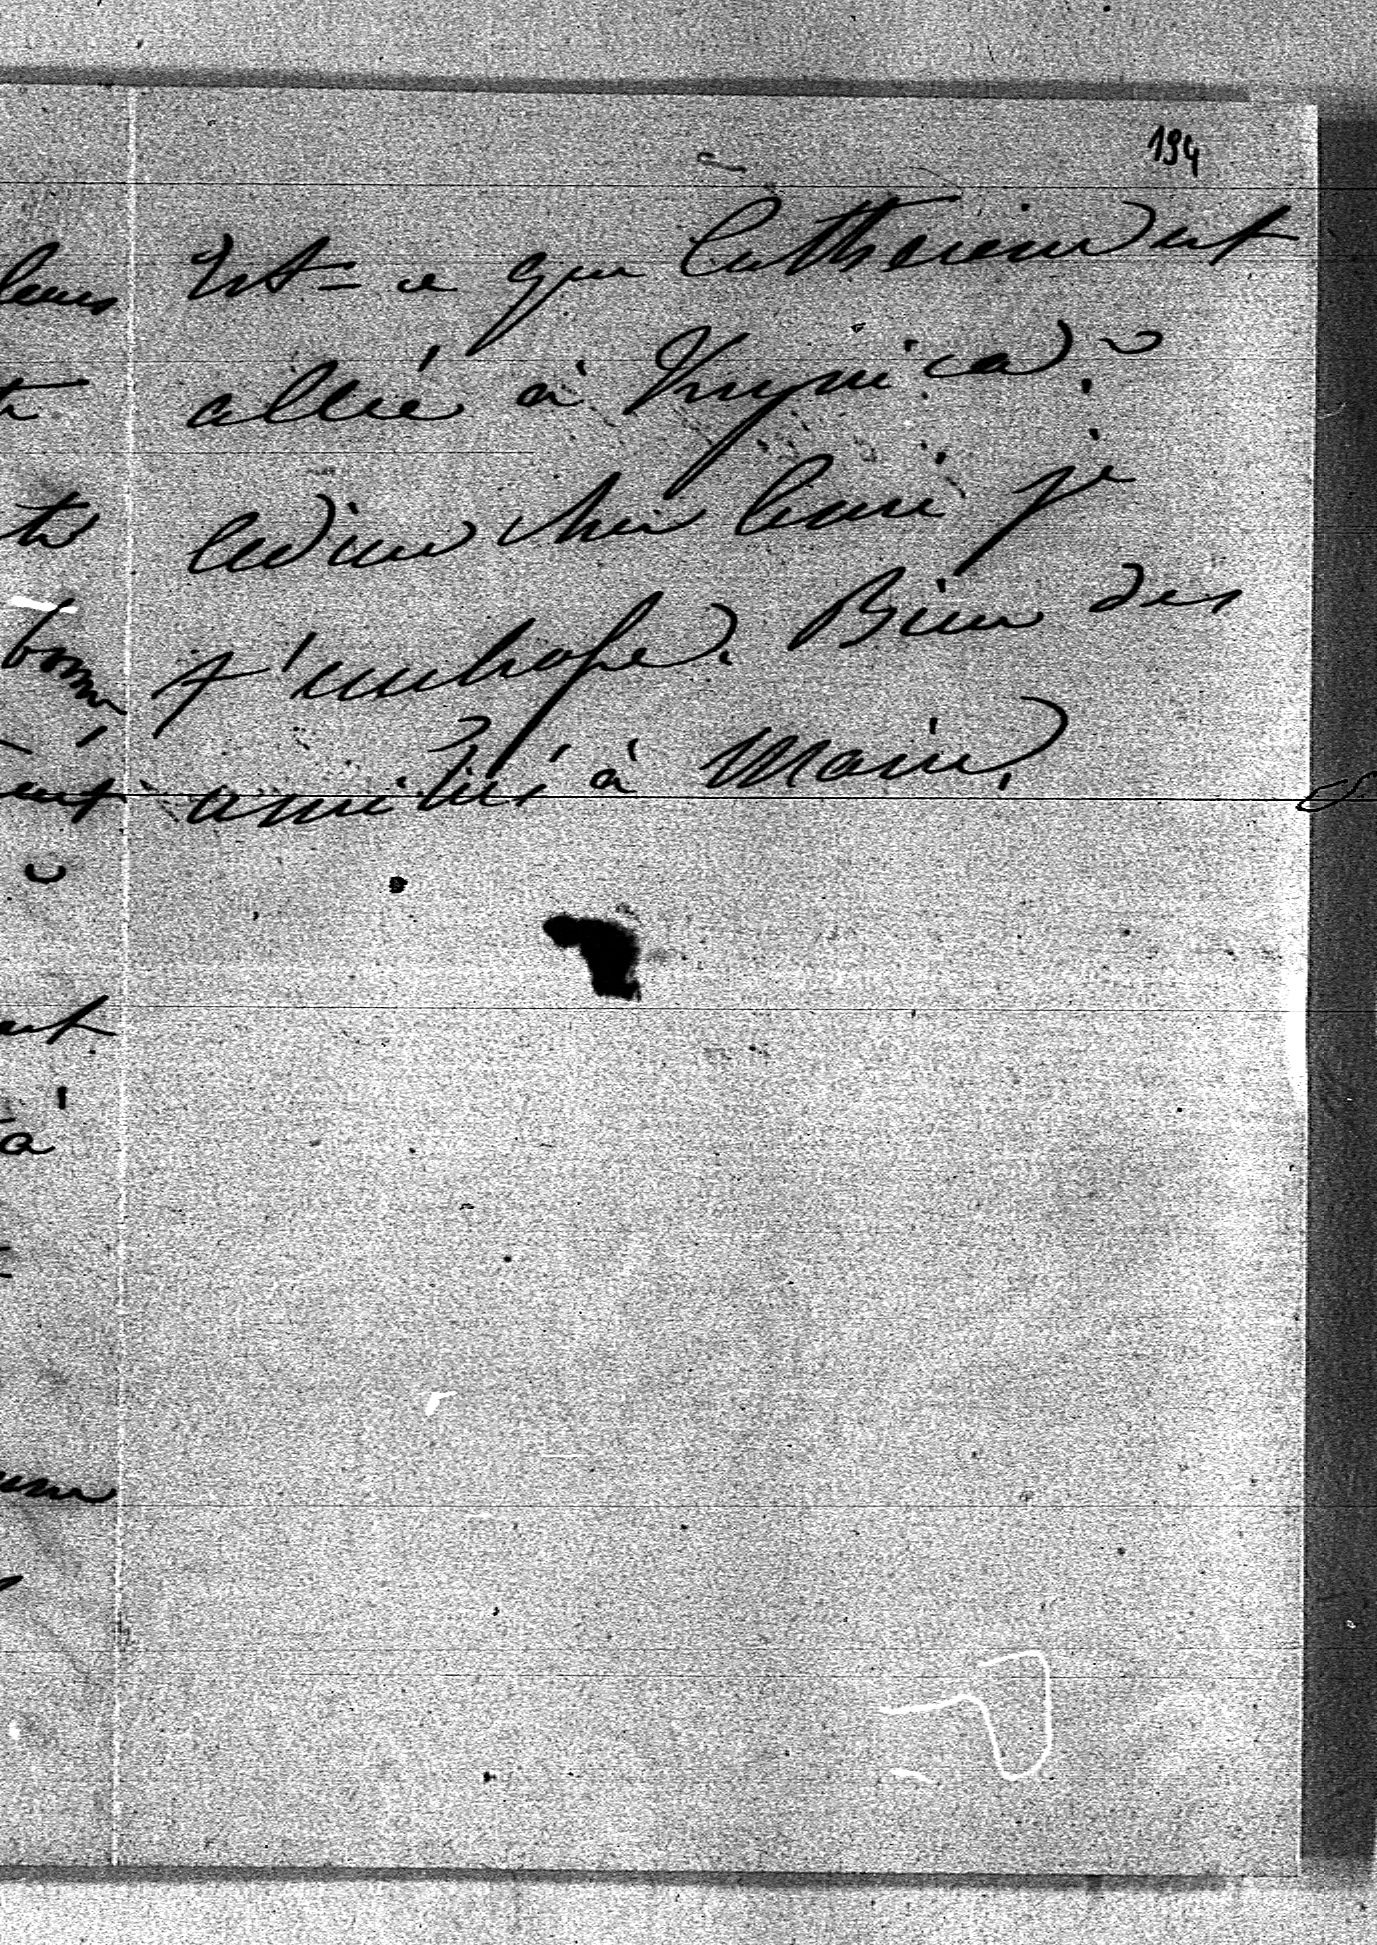 194
Est-ce que Catherine est
allée à Krynica?
Adieu chère Année je
t'embrasse. Bien des
amitiés à Marie.